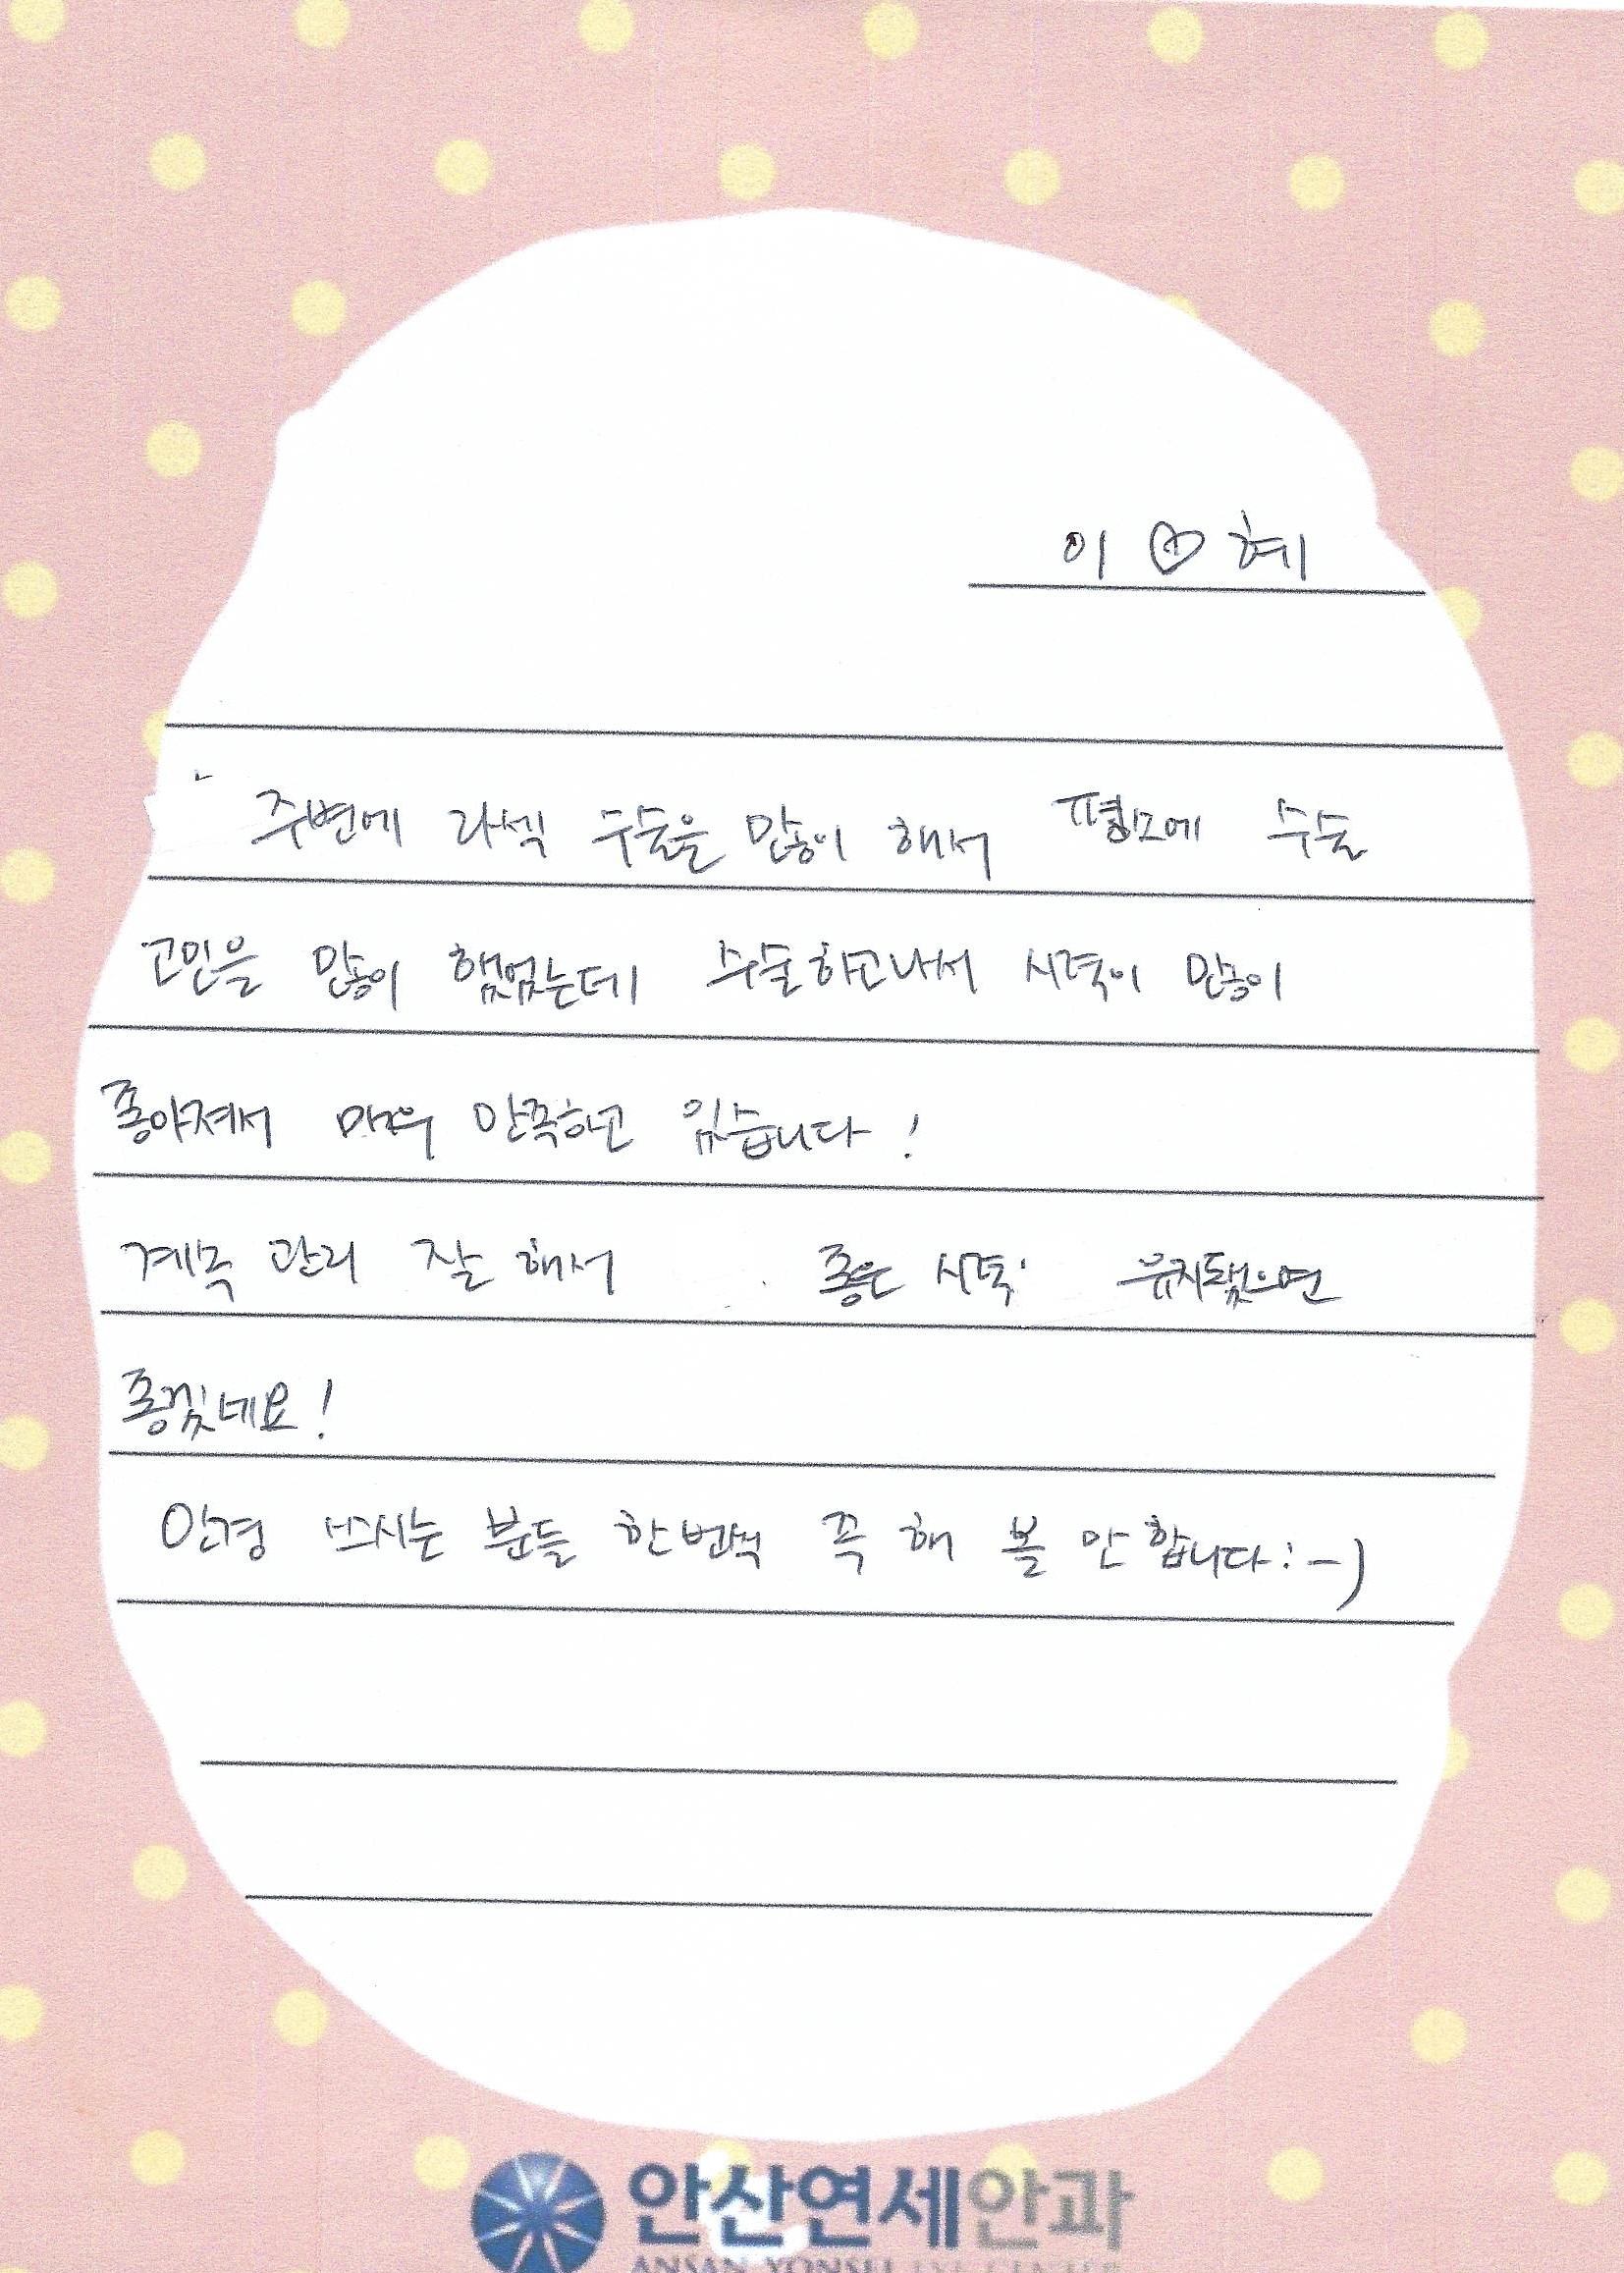 이 ♡ 혜
주변에 라섹 수술을 많이 해서 평소에 수술
고민을 많이 했었는데 수술하고나서 시력이 많이
좋아져서 매우 만족하고 있습니다!
계속 관리 잘 해서 좋은 시력 유지됐으면
좋겠네요!
안경 쓰시는 분들 한번씩 꼭 해 볼 만 합니다:-)
안산연세안과
ANSAN YONSEI EYE CENTER